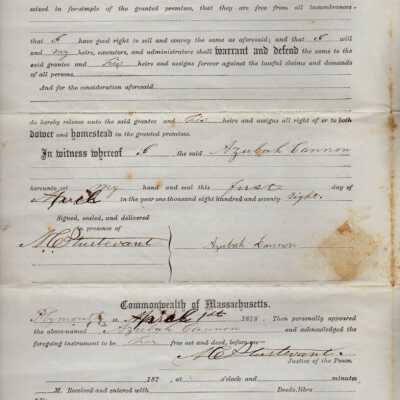 seized in fee-simple of the granted premises, that they are free from all incumbrances
that I have good right to sell and convey the same as aforesaid; and that I will
and my heirs, executors, and administrators shall warrant and defend the same to the
said grantee and his heirs and assigns forever against the lawful claims and demands
of all persons.
And for the consideration aforesaid
do hereby release unto the said grantee and his heirs and assigns all right of or to both
dower and homestead in the granted premises.
In witness whereof I the said Azubah Cannon
hereunto set my hand and seal this first day of
March in the year one thousand eight hundred and seventy eight.
Signed, sealed, and delivered
in presence of
M. C. Sturtevant
Azubah Cannon
Commonwealth of Massachusetts.
Plymouth ss March 1st 1878. Then personally appeared
the above-named Azubah Cannon and acknowledged the
foregoing instrument to be her free act and deed, before me—
M. C. Sturtevant
Justice of the Peace.
187 , at o'clock and minutes
M. Received and entered with Deeds, libro